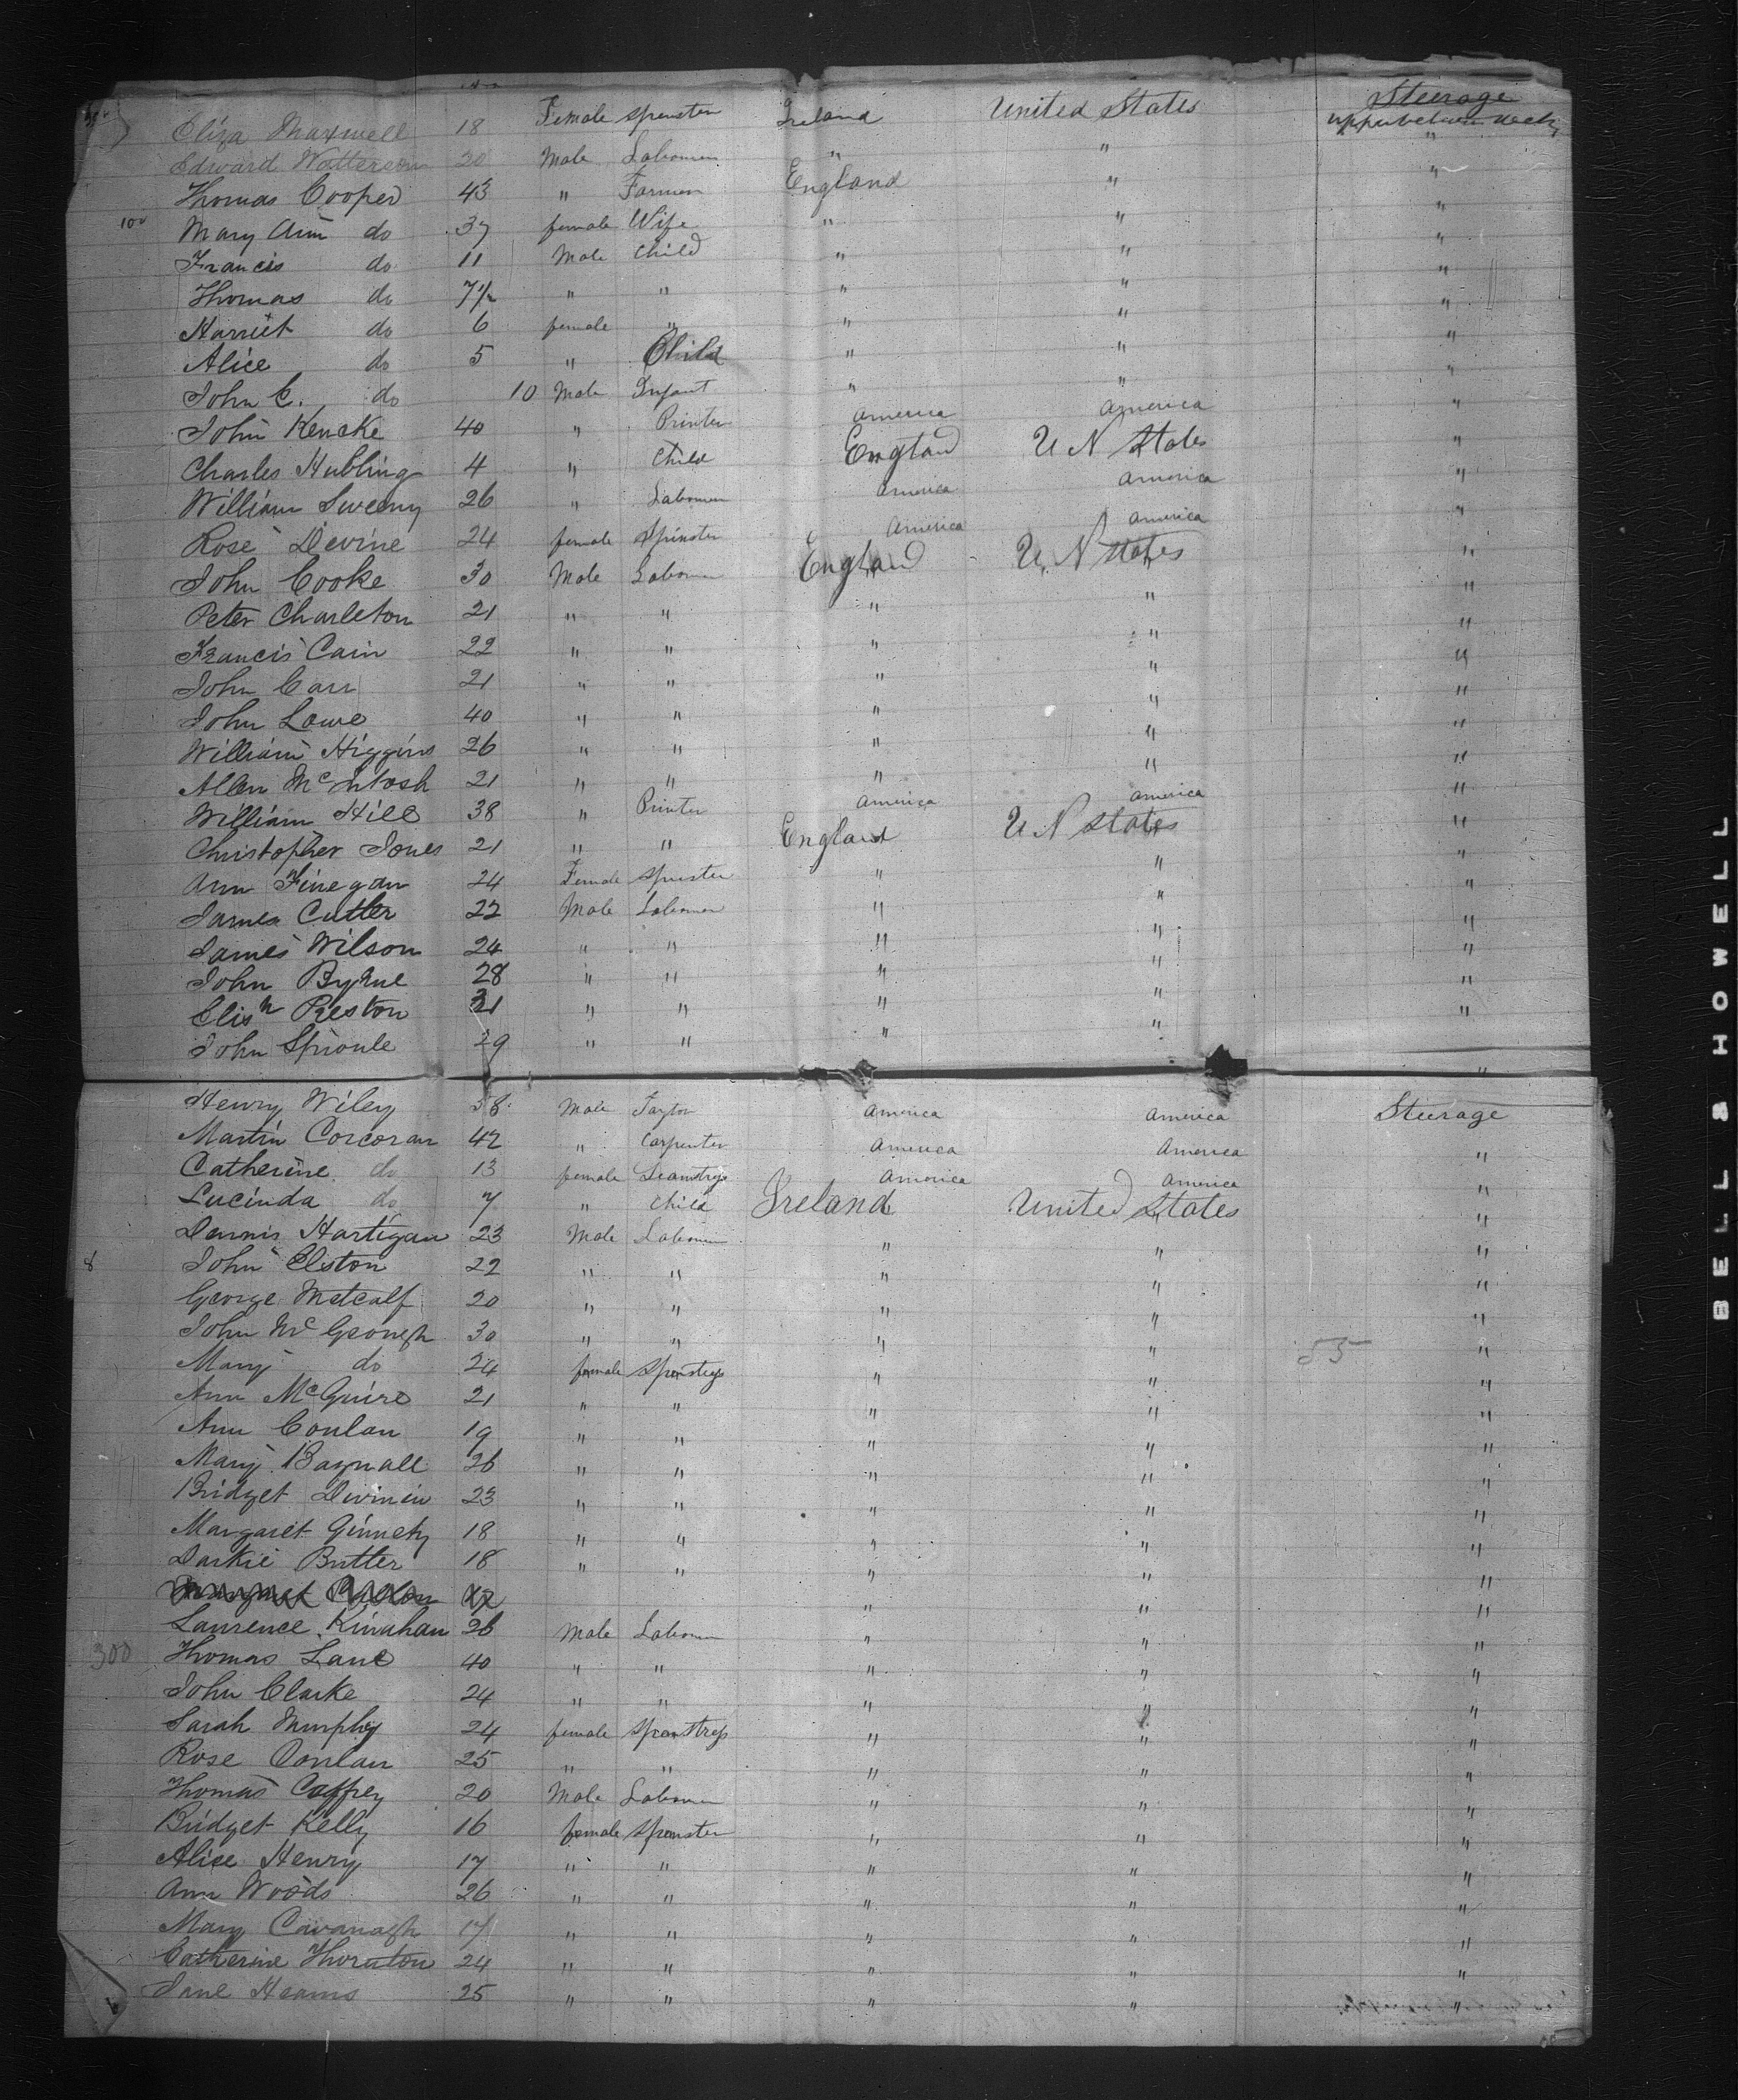 Steerage
Eliza Maxwell 18 Female Spinster Ireland United States upper between decks
Edward Watterson 20 Male Labourer " " "
Thomas Cooper 43 " Farmer England " "
100 Mary Ann do 37 female Wife " " "
Francis do 11 Male Child " " "
Thomas do 7½ " " " " "
Harriet do 6 female " " " "
Alice do 5 " Child " " "
John C. do 10 Male Infant " " "
John Kencke 40 " Printer America America "
Charles Hubling 4 " Child England U N States "
William Sweeny 26 " Labourer America America "
Rose Devine 24 female Spinster America America "
John Cooke 30 Male Labourer England U. N States "
Peter Charleton 21 " " " " "
Francis Cain 22 " " " " "
John Carr 21 " " " " "
John Lowe 40 " " " " "
William Higgins 26 " " " " "
Allen McIntosh 21 " " " " "
William Hill 38 " Printer America America "
Christopher Jones 21 " " England U N States "
Ann Finegan 24 Female Spinster " " "
James Cutler 22 Male Labourer " " "
James Wilson 24 " " " " "
John Byrne 28 " " " " "
Elish Preston 21 " " " " "
John Sproule 29 " " " " "
Henry Wiley 38 Male Taylor America America Steerage
Martin Corcoran 42 " Carpenter America America "
Catherine do 13 female Seamstrys America America "
Lucinda do 7 " Child Ireland United States "
Dennis Hartigan 23 Male Labourer " " "
8 John Elston 22 " " " " "
George Metcalf 20 " " " " "
John McGeough 30 " " " " "
Mary do 24 female Spinstrys " " 55 "
Ann McGuire 21 " " " " "
Ann Conlan 19 " " " " "
Mary Bagnall 26 " " " " "
Bridget Divinin 23 " " " " "
Margaret Ginnety 18 " " " " "
Darkie Butler 18 " " " " "
Margaret " " "
Laurence Kinahan 26 Male Labourer " " "
300 Thomas Lane 40 " " " " "
John Clarke 24 " " " " "
Sarah Murphy 24 female Spinstrys " " "
Rose Conlan 25 " " " " "
Thomas Caffrey 20 Male Labourer " " "
Bridget Kelly 16 female Spinster " " "
Alice Henry 17 " " " " "
Ann Woods 26 " " " " "
Mary Cavanagh 17 " " " " "
Catherine Thornton 24 " " " " "
Jane Heams 25 " " " " "
BELL & HOWELL